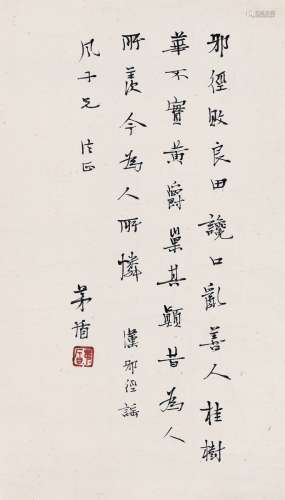 邪徑敗良田讒口亂善人桂樹
華不實黃爵巢其顛昔為人
所羨今為人所憐 漢邪徑謠
凤子兄
茅盾